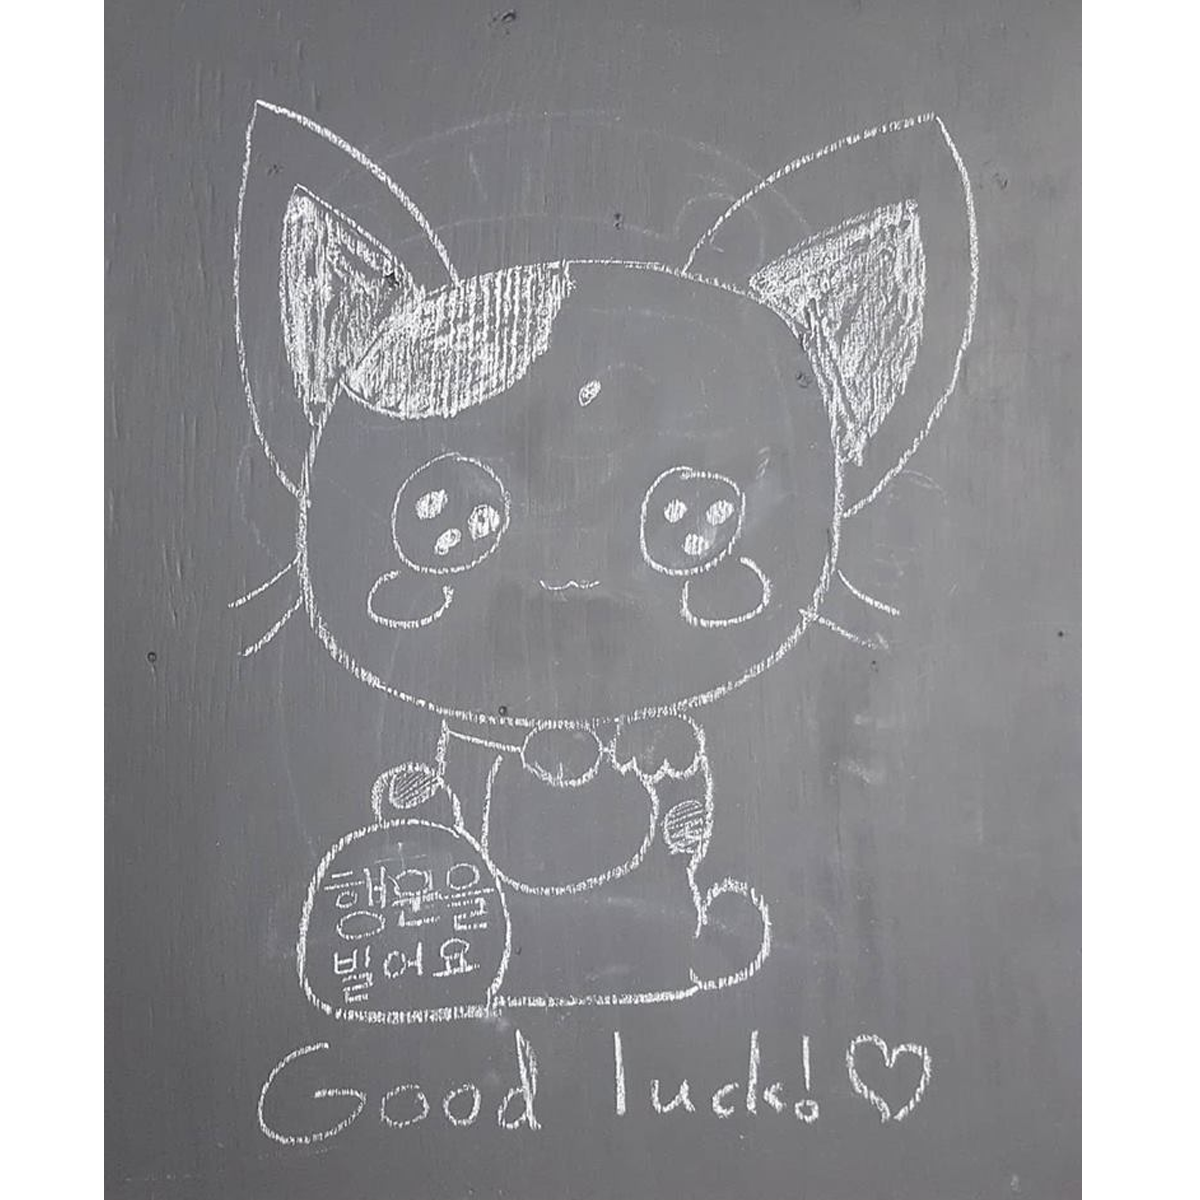 행운을
빌어요
Good luck!